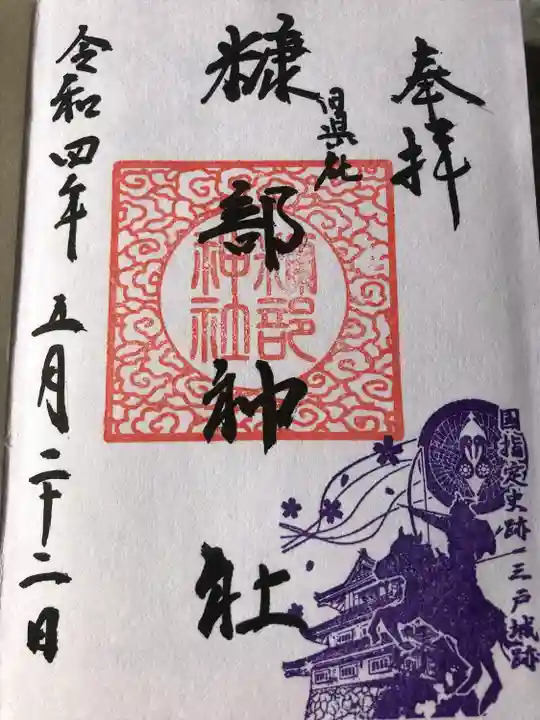 奉拝
旧県社
糠部神社
糠部
神社
令和四年 五月二十二日
国指定史跡 三戸城跡